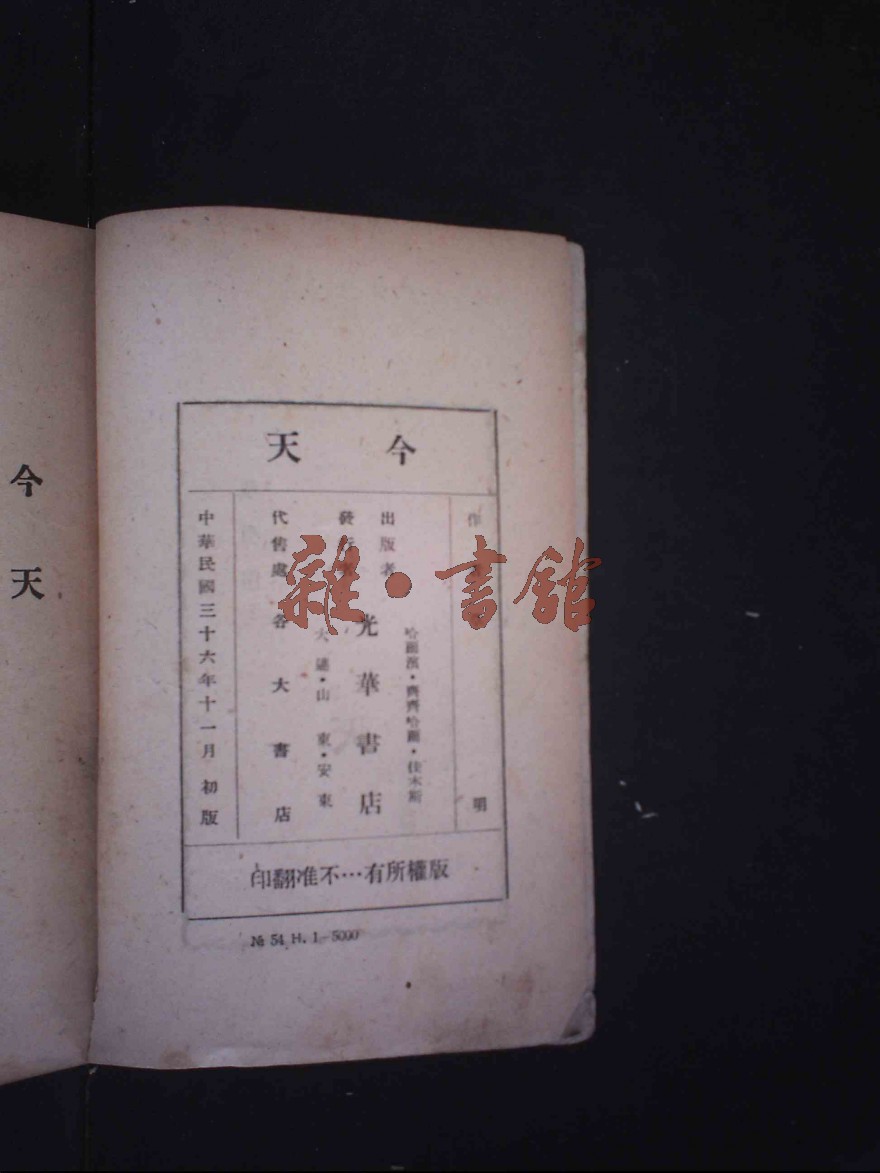 今天
今天
作 明
哈爾濱・齊齊哈爾・佳木斯
出版者
發行者
光華書店
大連・山東・安東
代售處 各大書店
中華民國三十六年十一月初版
版權所有…不准翻印
№ 54 H. 1—5000
雜・書館